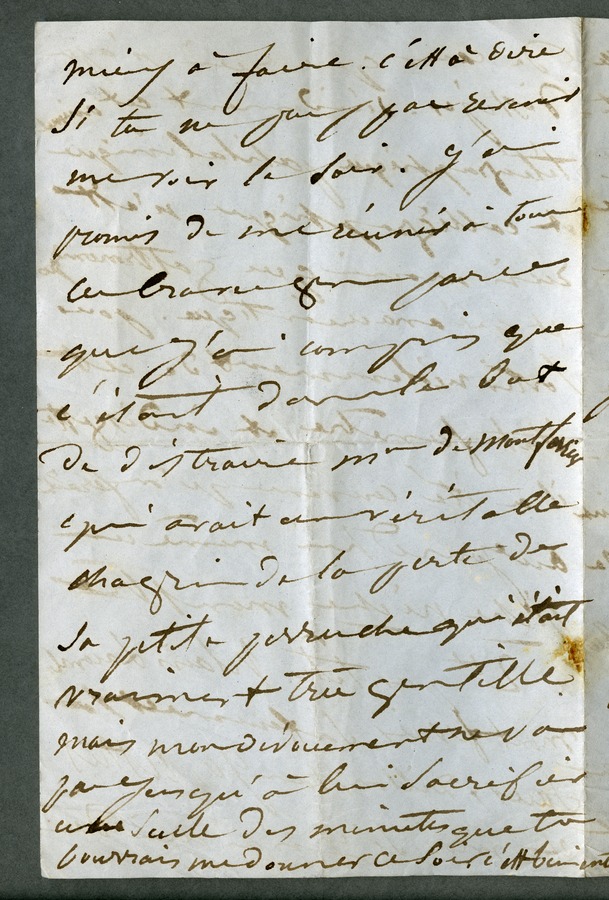 mieux à faire. c'est à dire
si tu ne peux pas revenir
me voir le soir. j'ai
promis de me réunir à tous
ces braves gens parce
que j'ai compris que
c'était dans le but
de distraire mr de
qui avait un véritable
chagrin de la perte de
sa petite perruche qui était
vraiment très gentille
mais mon dévouement ne va
pas jusqu'à lui sacrifier
une seule des minutes que tu
pourrais me donner ce soir c'est bien